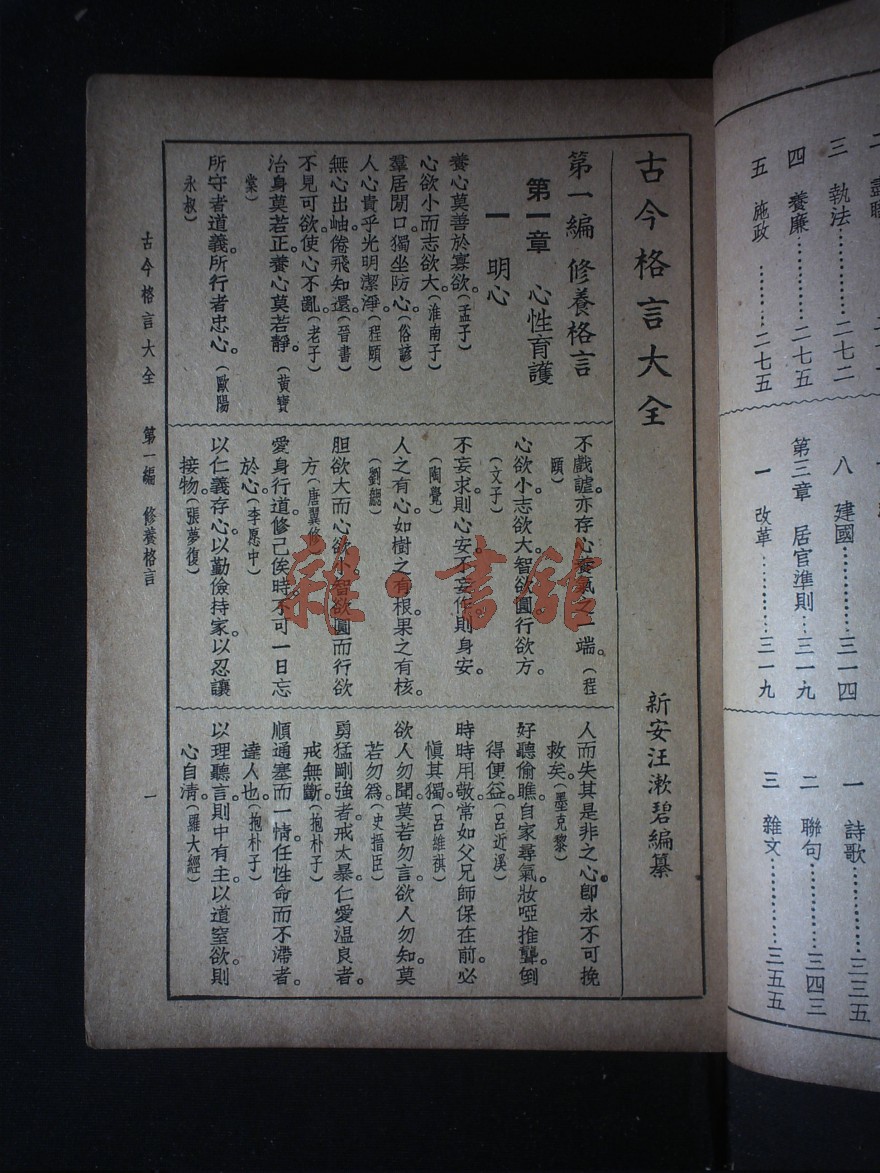 古今格言大全
新安汪漱碧編纂
第一編 修養格言
第一章 心性育護
一 明心
養心莫善於寡欲。(孟子)
心欲小而志欲大。(淮南子)
羣居閉口獨坐防心。(俗諺)
人心貴乎光明潔淨。(程頤)
無心出岫倦飛知還。(晉書)
不見可欲使心不亂。(老子)
治身莫若正。養心莫若靜。(黃寶
棠)
所守者道義。所行者忠心。(歐陽
永叔)
不戲謔亦存心養氣之一端。(程
頤)
心欲小志欲大。智欲圓行欲方。
(文子)
不妄求則心安。不妄作則身安。
(陶覺)
人之有心。如樹之有根。果之有核。
(劉勰)
胆欲大而心欲小。智欲圓而行欲
方。(唐翼修)
愛身行道。修己俟時。不可一日忘
於心。(李愿中)
以仁義存心。以勤儉持家。以忍讓
接物。(張夢復)
人而失其是非之心。卽永不可挽
救矣。(墨克黎)
好聽偷瞧。自家尋氣。妝啞推聾。倒
得便益。(呂近溪)
時時用敬。常如父兄師保在前。必
愼其獨。(呂維祺)
欲人勿聞。莫若勿言。欲人勿知。莫
若勿爲。(史搢臣)
勇猛剛強者。戒太暴。仁愛温良者。
戒無斷。(抱朴子)
順通塞而一情。任性命而不滯者。
達人也。(抱朴子)
以理聽言。則中有主。以道窒欲。則
心自清。(羅大經)
古今格言大全 第一編 修養格言
一
三 執法…………二七二
四 養廉…………二七五
五 施政…………二七五
八 建國…………三一四
第三章 居官準則…三一九
一 改革…………三一九
一 詩歌…………三三五
二 聯句…………三四三
三 雜文…………三五五
雜·書館